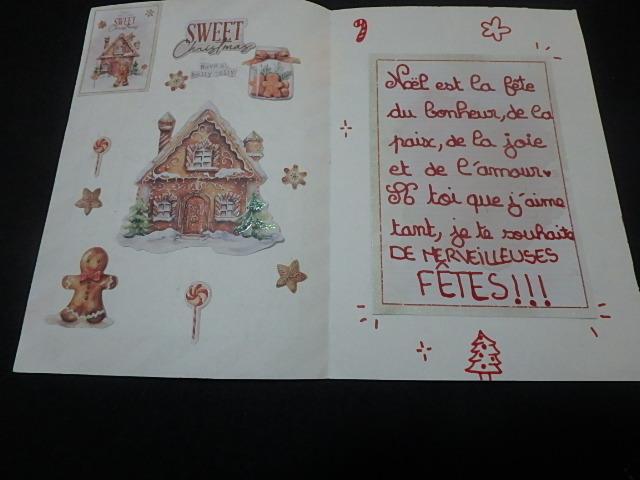 SWEET
Christmas
SWEET
Christmas
Have a
holly jolly
Noël est la fête
du bonheur, de la
paix, de la joie
et de l'amour♥
A toi que j'aime
tant, je te souhaite
DE MERVEILLEUSES
FÊTES!!!